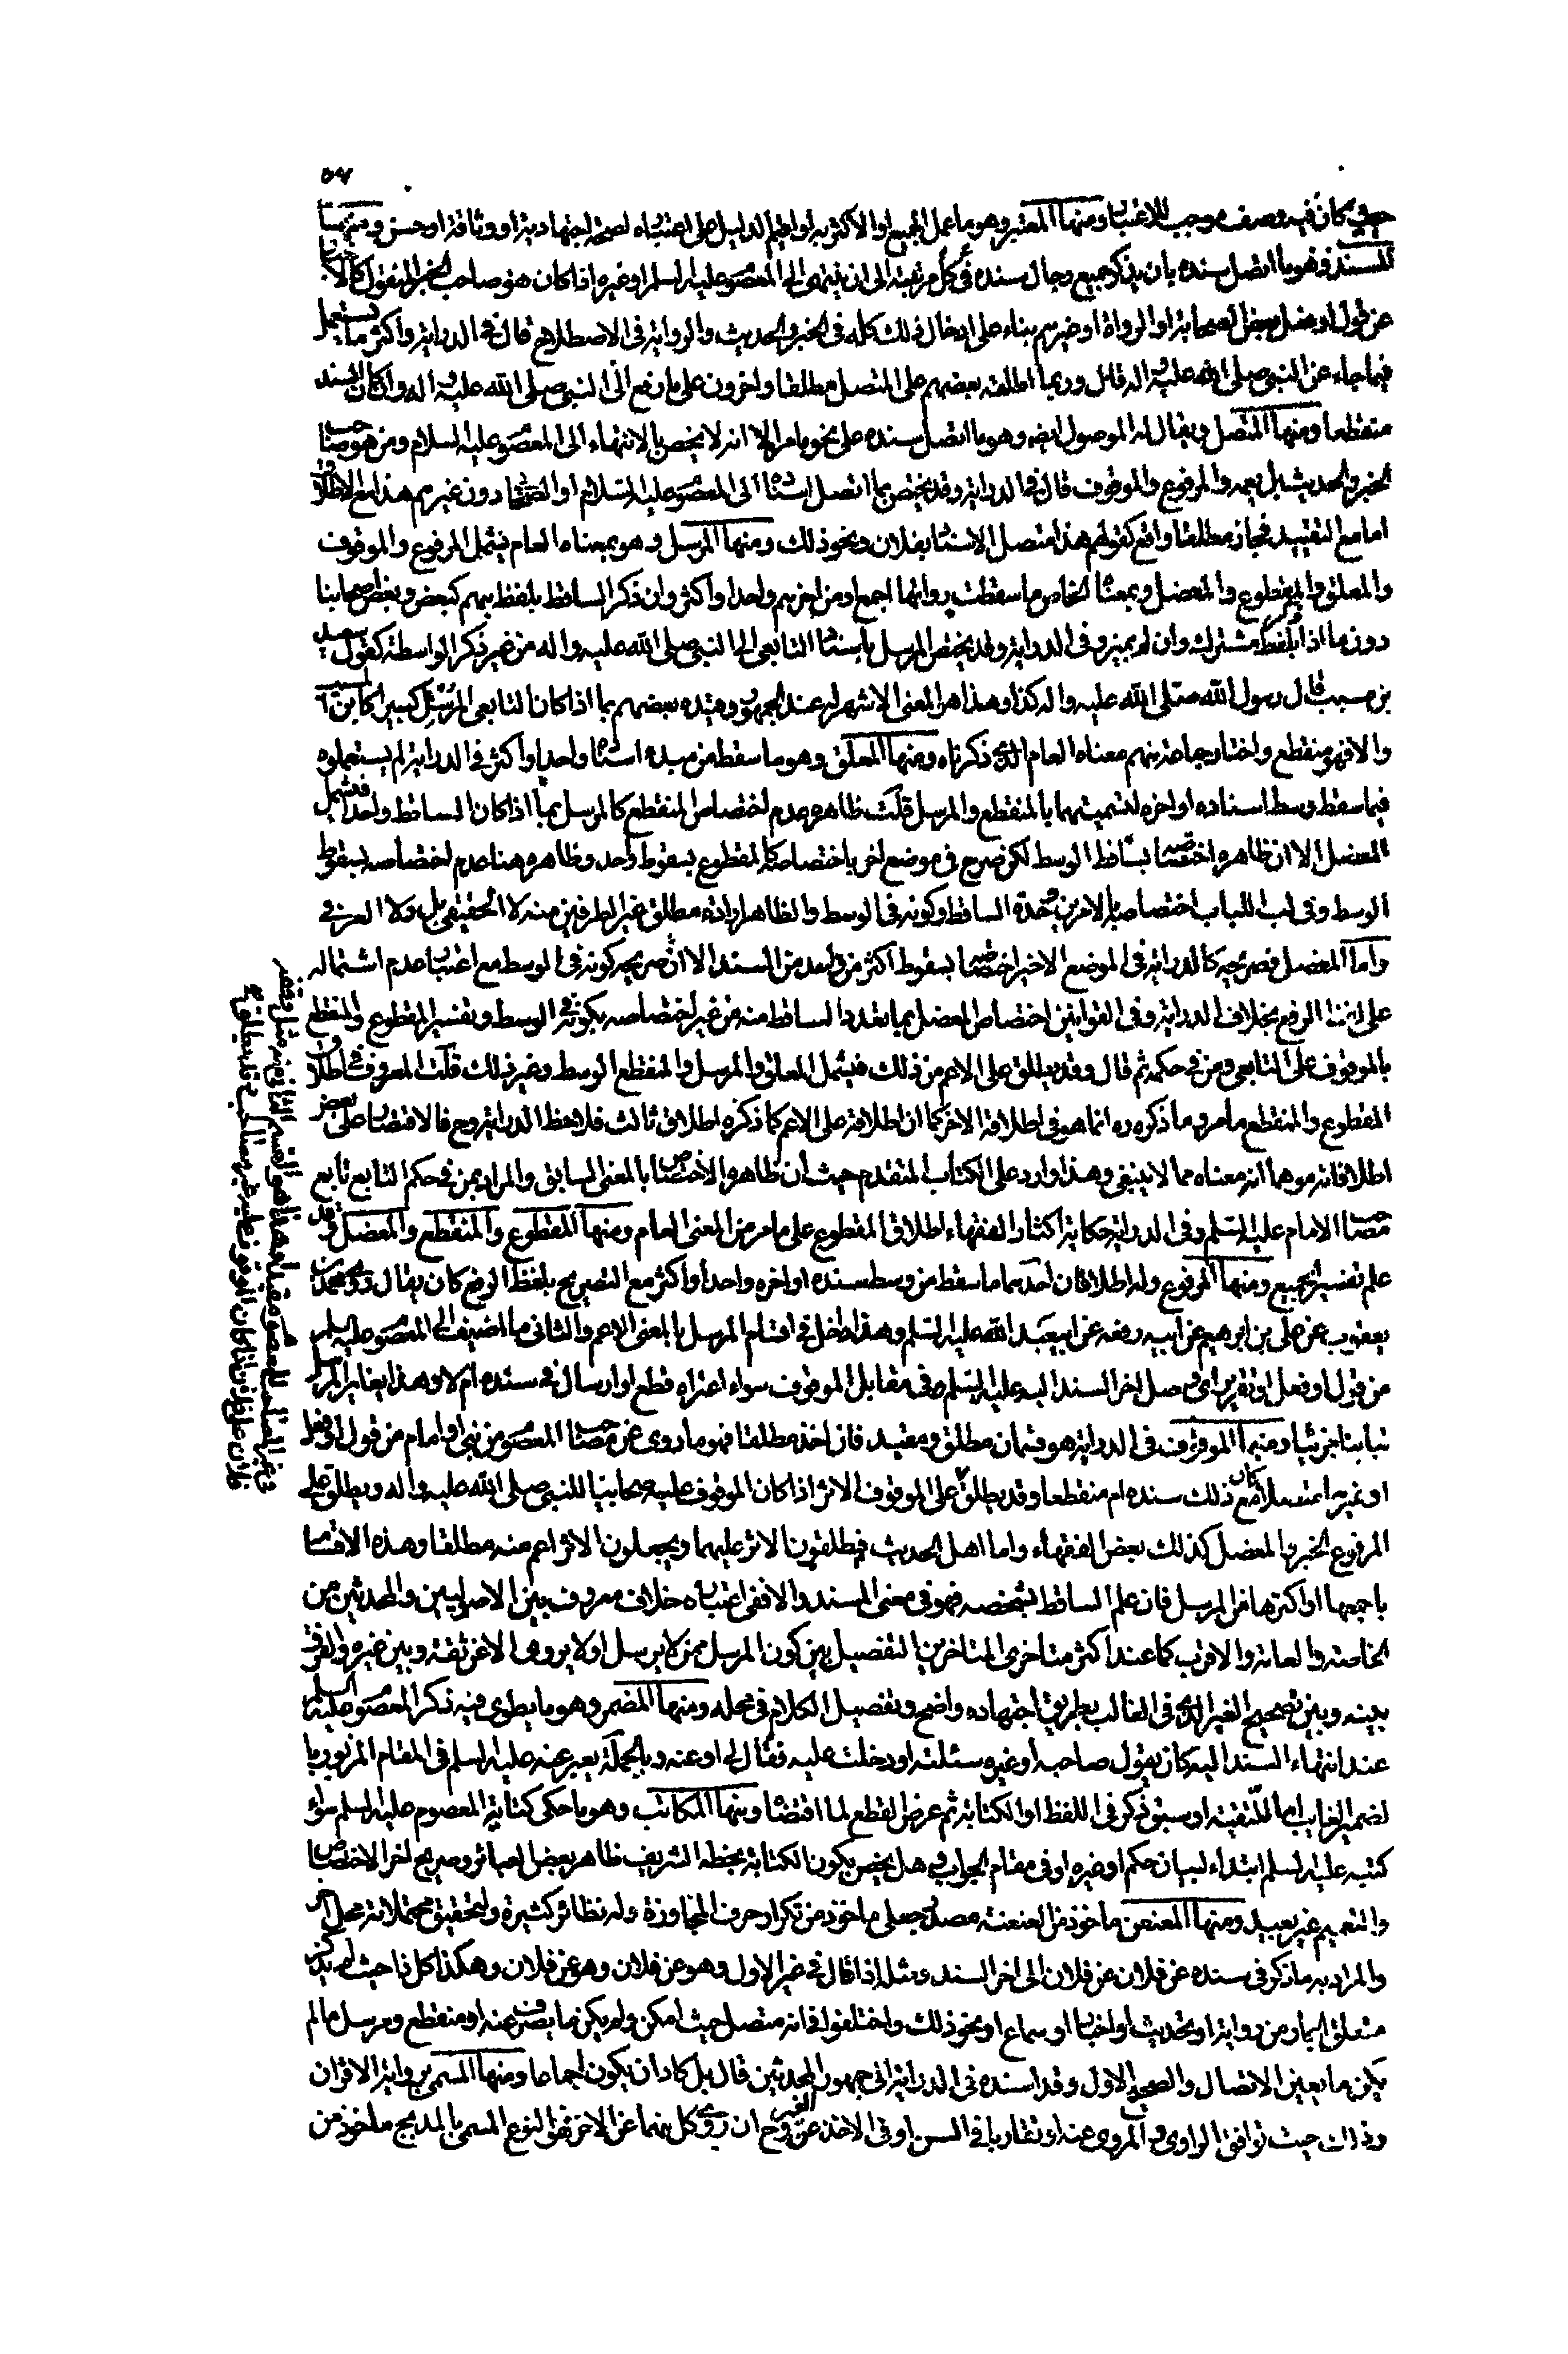 ٥٧
كان فيه وصف موجب للاعتبار ومنها المعتبر وهو ما عمل الجميع او الاكثر به او اقيم الدليل على اعتباره لصحة اجتهادية او وثاقة او حسن ومنها
المسند وهو ما اتصل سنده بان يذكر جميع رجال سنده في كل مرتبة الى ان ينتهى الى المعصوم عليه السلم او غيره اذا كان هو صاحب الخبر المنقول
عن قول او فعل بعض الصحابة او الرواة او غيرهم بناء على ادخال ذلك كله في الخبر والحديث والرواية في الاصطلاح قال في الدراية واكثر ما يستعمل
فيما جاء عن النبي صلى الله عليه واله قال وربما اطلقه بعضهم على المتصل مطلقا واخرون على ما رفع الى النبي صلى الله عليه واله وان كان السند
منقطعا ومنها المتصل ويقال له الموصول ايضه وهو ما اتصل سنده على نحو ما مر الا انه لا يخص بالانتهاء الى المعصوم عليه السلام ومن هو صاحب
الخبر والحديث بل يعمه والمرفوع والموقوف قال في الدراية وقد يختص بما اتصل اسناده الى المعصوم عليه السلام او الصحابي دون غيرهم هذا مع الاطلاق
اما مع التقييد فجائز مطلقا واقع كقولهم هذا متصل الاسناد بفلان ونحو ذلك ومنها المرسل وهو بمعناه العام فيشمل المرفوع والموقوف
والمعلق والمقطوع والمعضل وبمعناه الخاص ما سقطت رواتها اجمع او من اخرهم واحد او اكثر وان ذكر الساقط بلفظ مبهم كبعض وبعض اصحابنا
دون ما اذا ذكر بلفظ مشترك وان لم يميز وفي الدراية وقد يختص المرسل باسناد التابعى الى النبي صلى الله عليه واله من غير ذكر الواسطة كقول سعيد
بن مسيب قال رسول الله صلى الله عليه واله كذا وهذا هو المعنى الاشهر له عند الجمهور وقيده بعضهم بما اذا كان التابعى المرسل كبير كابن المسيب
والا فهو منقطع واختار جماعة منهم معناه العام الذي ذكرناه ومنها المعلق وهو ما سقط من مبدء اسناده واحد او اكثر في الدراية لم يستعملوه
فيما سقط وسط اسناده او اخره لتسميتهما بالمنقطع والمرسل قلت ظاهره عدم اختصاص المنقطع كالمرسل بما اذا كان الساقط واحدا فيشمل
المعضل الا ان ظاهره اختصاصه بساقط الوسط لكن صرح في موضع اخر باختصاصه كالمقطوع بسقوط واحد وظاهره هنا عدم اختصاصه بسقوط
الوسط وفي لب اللباب اختصاصه بالامرين وحدة الساقط وكونه في الوسط والظاهر ارادة مطلق غير الطرفين منه لا الحقيقي بل ولا العرفي
واما المعضل فصريحه كالدراية في الموضع الاخير اختصاصه بسقوط اكثر من واحد من السند الا ان صريحه كونه في الوسط مع اعتبار عدم اشتماله
على الرفع بخلاف الدراية وفي القوانين اختصاص المعضل بما تعدد الساقط منه من غير اختصاصه بكونه في الوسط وتفسير المقطوع والمنقطع
بالموقوف على التابعي ومن في حكمه ثم قال وقد يطلق على الاعم من ذلك فيشمل المعلق والمرسل والمنقطع الوسط وغير ذلك قلت المعروف في اطلاق
المقطوع والمنقطع ما مر وما ذكره ره انما هو في اطلاقه الاخر كما ان اطلاقه على الاعم كما ذكره اطلاق ثالث فلاحظ الدراية وح فالاقتصار على بعض
اطلاقاته موهما انه معناه مما لا ينبغي وهذا وارد على الكتاب المتقدم حيث ان ظاهره الاختصاص بالمعنى السابق والمراد بمن في حكم التابع تابع
مصاحب الامام عليه السلم وفي الدراية حكاية اكثار الفقهاء اطلاق المقطوع على ما مر من المعنى العام ومنها المقطوع والمنقطع والمعضل وقد
علم تفسير الجميع ومنها المرفوع وله اطلاقان احدهما ما سقط من وسط سنده او اخره واحد او اكثر مع التصريح بلفظ الرفع كان يقال روى محمد بن
يعقوب عن علي بن ابرهيم عن ابيه رفعه عن ابي عبد الله عليه السلم وهذا داخل في اقسام المرسل بالمعنى الاعم والثاني ما اضيف الى المعصوم عليه السلم
من قول او فعل او تقرير اي وصل اخر السند اليه عليه السلم وفي مقابل الموقوف سواء اعتراه قطع او ارسال في سنده ام لا وهذا يغاير المرسل
تباينا جزئيا ومنها الموقوف وفي الدراية هو قسمان مطلق ومقيد فان اخذ مطلقا فهو ما روى عن مصاحب المعصوم من نبي او امام من قول او فعل
او غيرهما متصلا كان مع ذلك سنده ام منقطعا وقد يطلق على الموقوف الاثر اذا كان الموقوف عليه صحابيا للنبي صلى الله عليه واله ويطلق على
المرفوع الخبر والمعضل كذلك بعض الفقهاء واما اهل الحديث فيطلقون الاثر عليهما ويجعلون الاثر اعم منه مطلقا وهذه الاقسام
باجمعها او اكثرها من المرسل فان علم الساقط بشخصه فهو في معنى المسند والا ففي اعتباره خلاف معروف بين الاصوليين والمحدثين من
الخاصة والعامة والاقرب كما عند اكثر متاخرى المتاخرين التفصيل بين كون المرسل ممن لا يرسل او لا يروى الا عن ثقة وبين غيره والفرق
بينه وبين تصحيح الغير الذي في الغالب بطريق اجتهاده واضح وتفصيل الكلام في محله ومنها المضمر وهو ما يطوى فيه ذكر المعصوم عليه السلم
عند انتهاء السند اليه كان يقول صاحبه او غيره سئلته او دخلت عليه فقال لي او عنه وبالجملة يعبر عنه عليه السلم في المقام المزبور با
لضمير الغايب اما للتقية او سبق ذكر في اللفظ او الكتابة ثم عرض القطع لما اقتضاه ومنها المكاتب وهو ما حكى كتابة المعصوم عليه السلم سواء
كتبه عليه السلم ابتداء لبيان حكم او غيره او في مقام الجواب وهل يخص بكون الكتابة بخطه الشريف ظاهر بعض العبائر وصريح اخر الاختصاص
والتعميم غير بعيد ومنها المعنعن ماخوذ من العنعنة مصدر جعلي ماخوذ من تكرار حرف المجاوزة وله نظائر كثيرة
والمراد به ما ذكر في سنده عن فلان عن فلان الى اخر السند ومثل اذا قال في غير الاول وهو عن فلان وهو عن فلان وهكذا كل ذا حيث لم يذكر
متعلق الجار من رواية او تحديث او اخبار او سماع او نحو ذلك واختلفوا فانه متصل حيث امكن ولم يكن ما يصرف عنه او منقطع ومرسل ما لم
يكن ما يعين الاتصال والصحيح الاول وقد اسنده في الدراية الى جمهور المحدثين قال بل كاد ان يكون اجماعا ومنها المسمى برواية الاقران
وذلك حيث توافق الراوى والمروى عنه او تقاربا في السن او في الاخذ عن الغير وح ان روى كل منهما عن الاخر فهو النوع المسمى بالمدبج ماخوذ من